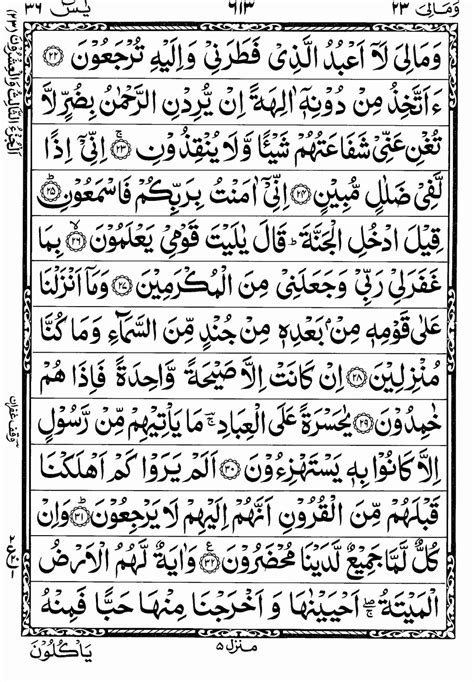 وَمَالِىَ ٢٣ ٦١٣ يٰسٓ ٣٦
وَمَالِىَ لَآ اَعْبُدُ الَّذِىْ فَطَرَنِىْ وَاِلَيْهِ تُرْجَعُوْنَ ﴿٢٢﴾
ءَاَتَّخِذُ مِنْ دُوْنِهٖٓ اٰلِهَةً اِنْ يُّرِدْنِ الرَّحْمٰنُ بِضُرٍّ لَّا
تُغْنِ عَنِّىْ شَفَاعَتُهُمْ شَيْـًٔا وَّلَا يُنْقِذُوْنِ ۚ ﴿٢٣﴾ اِنِّىْٓ اِذًا
لَّفِىْ ضَلٰلٍ مُّبِيْنٍ ﴿٢٤﴾ اِنِّىْٓ اٰمَنْتُ بِرَبِّكُمْ فَاسْمَعُوْنِ ؕ ﴿٢٥﴾
قِيْلَ ادْخُلِ الْجَنَّةَ ؕ قَالَ يٰلَيْتَ قَوْمِىْ يَعْلَمُوْنَ ۙ ﴿٢٦﴾ بِمَا
غَفَرَلِىْ رَبِّىْ وَجَعَلَنِىْ مِنَ الْمُكْرَمِيْنَ ﴿٢٧﴾ وَمَآ اَنْزَلْنَا
عَلٰى قَوْمِهٖ مِنْۢ بَعْدِهٖ مِنْ جُنْدٍ مِّنَ السَّمَآءِ وَمَا كُنَّا
مُنْزِلِيْنَ ﴿٢٨﴾ اِنْ كَانَتْ اِلَّا صَيْحَةً وَّاحِدَةً فَاِذَا هُمْ
خٰمِدُوْنَ ﴿٢٩﴾ يٰحَسْرَةً عَلَى الْعِبَادِ ۚؔ مَا يَاْتِيْهِمْ مِّنْ رَّسُوْلٍ
اِلَّا كَانُوْا بِهٖ يَسْتَهْزِءُوْنَ ﴿٣٠﴾ اَلَمْ يَرَوْا كَمْ اَهْلَكْنَا
قَبْلَهُمْ مِّنَ الْقُرُوْنِ اَنَّهُمْ اِلَيْهِمْ لَا يَرْجِعُوْنَ ؕ ﴿٣١﴾ وَاِنْ
كُلٌّ لَّمَّا جَمِيْعٌ لَّدَيْنَا مُحْضَرُوْنَ ࣖ ﴿٣٢﴾ وَاٰيَةٌ لَّهُمُ الْاَرْضُ
الْمَيْتَةُ ۖۚ اَحْيَيْنٰهَا وَ اَخْرَجْنَا مِنْهَا حَبًّا فَمِنْهُ
يَاْكُلُوْنَ
منزل ٥
اَلْجُزْءُ الثَّالِثُ وَالْعِشْرُوْنَ (٢٣)
وقف غفران